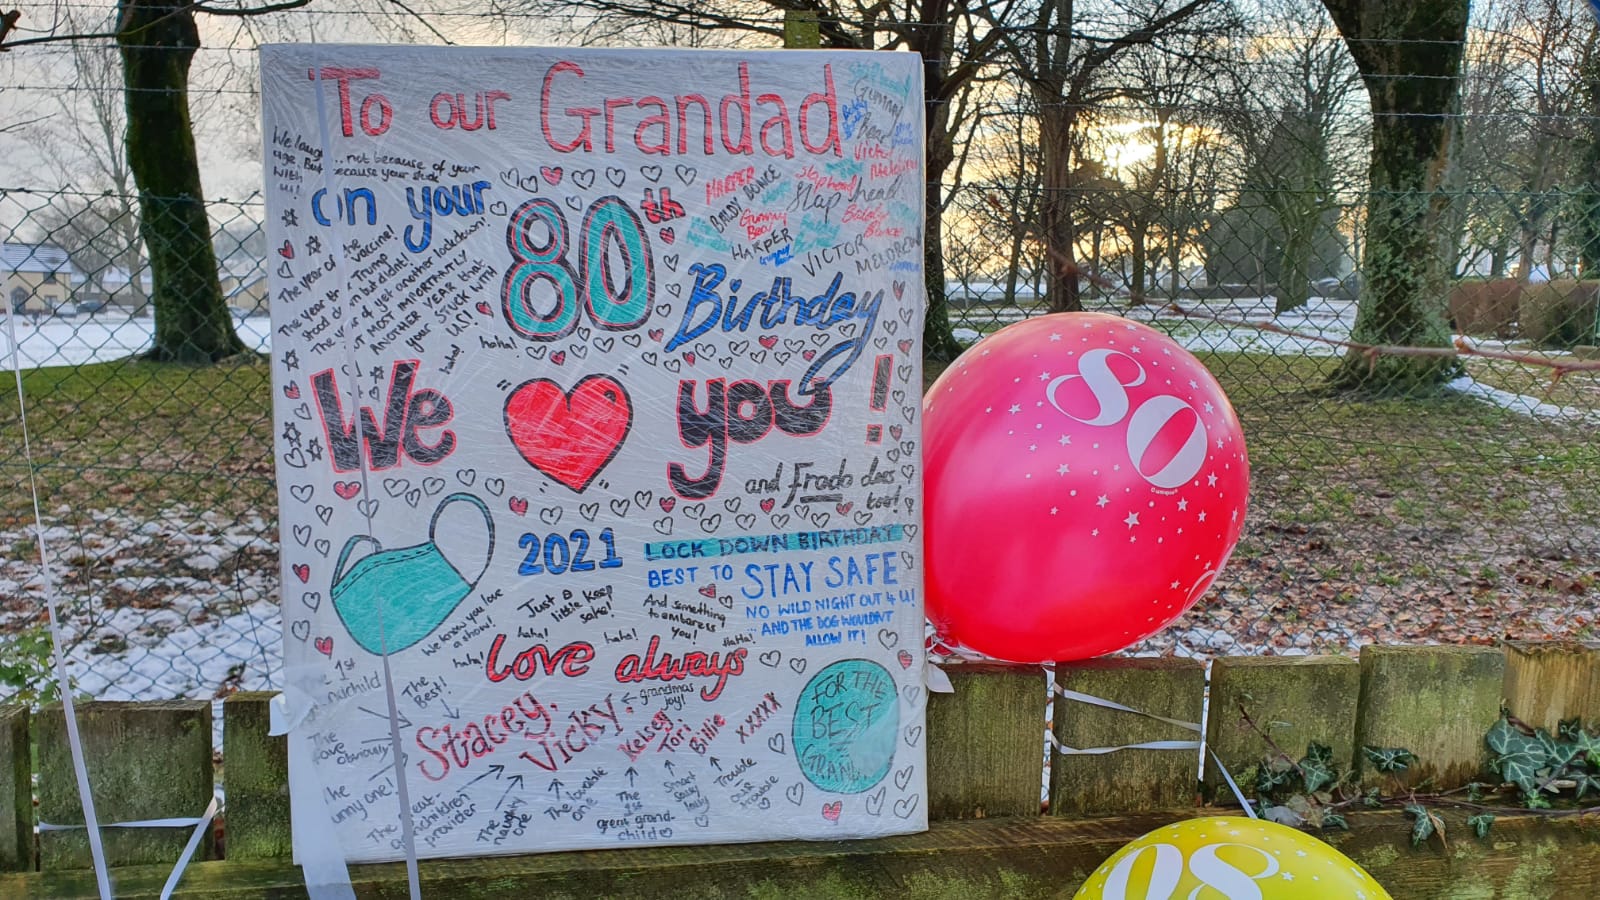 To our Grandad
not because of your
because your stuck
WITH
on your
80th
Birthday
HARPER
BALDY BOUNCE
Slaphead
Slap head
Gummy
Bear
HARPER
VICTOR
MELDREW
Gummy
Bear
Victor
The year of the vaccine!
The year Trump
stood down but didn't!
The year of yet another lockdown!
BUT MOST IMPORTANTLY
ANOTHER YEAR that
your STUCK WITH
US!
haha!
haha!
We ♥ you!
and Frodo does
too!
2021
LOCK DOWN BIRTHDAY
BEST TO STAY SAFE
NO WILD NIGHT OUT 4 U!
...AND THE DOG WOULDN'T
ALLOW IT!
Just a
little keep
sake!
And something
to embarress
you!
haha!
haha!
HaHa!
We know you love
a show!
haha!
Love always
1st
The
Best!
← grandmas
joy!
Stacey,
Vicky,
Kelsey
Tori
Billie
xxxxx
The
obviously
The
funny one!
The
grandchildren
provider
The
naughty
one
The lovable
one
The
great grand-
child
Smart
Trouble
our
trouble
FOR THE
BEST
80
80